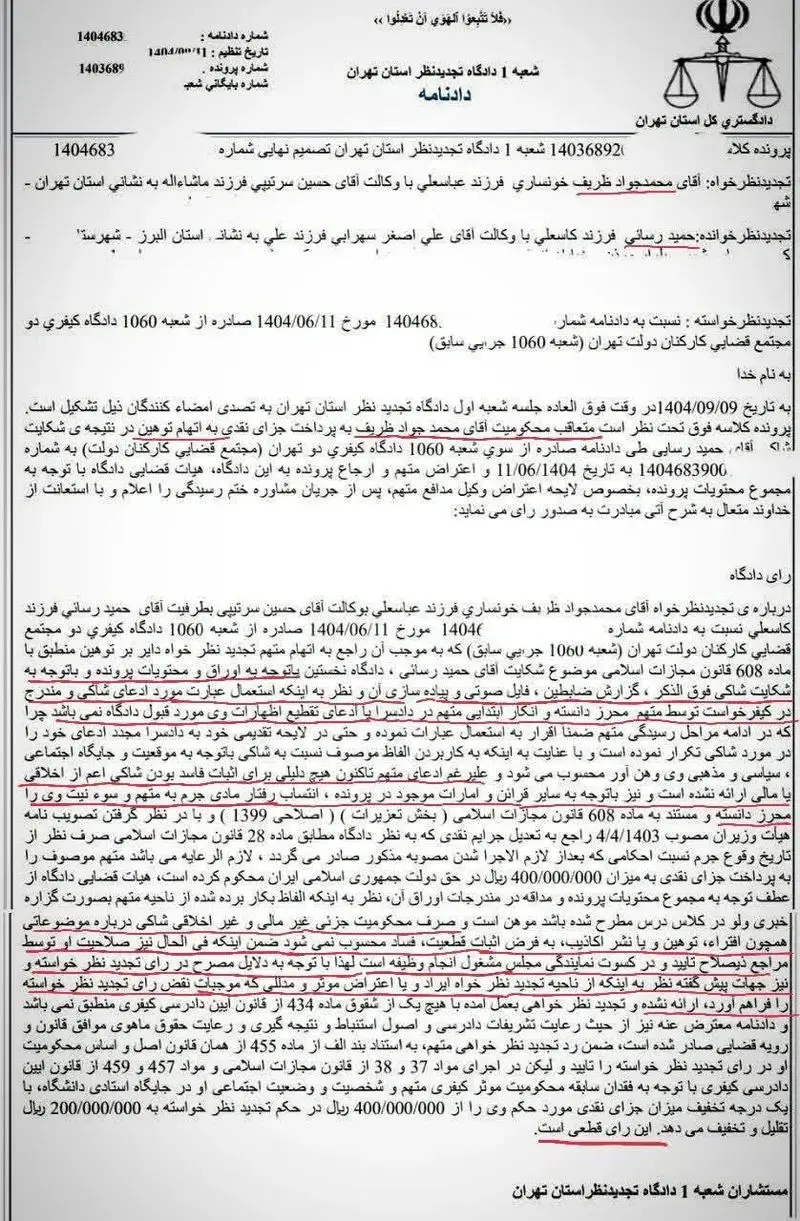 «فَلاٰ تَتَّبِعُوا اَلْهَوىٰ أَنْ تَعْدِلُوا»
شماره دادنامه : 1404683
تاریخ تنظیم :
شماره پرونده : 1403689
شماره بایگانی شعبه
شعبه 1 دادگاه تجدیدنظر استان تهران
دادنامه
دادگستری کل استان تهران
پرونده 14036892 شعبه 1 دادگاه تجدیدنظر استان تهران تصمیم نهایی شماره 1404683
تجدیدنظرخواه: آقای محمدجواد ظریف خونساري فرزند عباسعلي با وکالت آقای حسین سرتیپی فرزند ماشاءاله به نشاني استان تهران -
تجدیدنظرخوانده: حمید رسائي فرزند کاسعلي با وکالت آقای علي اصغر سهرابي فرزند علي به نشاني استان البرز - -
تجدیدنظرخواسته : نسبت به دادنامه شماره 140468 مورخ 1404/06/11 صادره از شعبه 1060 دادگاه کیفري دو
مجتمع قضایي کارکنان دولت تهران (شعبه 1060 جزایي سابق)
به نام خدا
به تاریخ 1404/09/09در وقت فوق العاده جلسه شعبه اول دادگاه تجدید نظر استان تهران به تصدی امضاء کنندگان ذیل تشکیل است.
پرونده کلاسه فوق تحت نظر است متعاقب محکومیت آقای محمد جواد ظریف به پرداخت جزای نقدی به اتهام توهین در نتیجه ی شکایت
آقای حمید رسایی طی دادنامه صادره از سوي شعبه 1060 دادگاه کیفري دو تهران (مجتمع قضایي کارکنان دولت) به شماره
1404683900 به تاریخ 11/06/1404 و اعتراض متهم و ارجاع پرونده به این دادگاه، هیات قضایی دادگاه با توجه به
مجموع محتویات پرونده، بخصوص لایحه اعتراض وکیل مدافع متهم، پس از جریان مشاوره ختم رسیدگی را اعلام و با استعانت از
خداوند متعال به شرح آتی مبادرت به صدور رای می نماید:
رای دادگاه
درباره ی تجدیدنظرخواه آقای محمدجواد ظریف خونساري فرزند عباسعلي بوکالت آقای حسین سرتیپی بطرفیت آقای حمید رسائي فرزند
کاسعلي نسبت به دادنامه شماره 14046 مورخ 1404/06/11 صادره از شعبه 1060 دادگاه کیفري دو مجتمع
قضایي کارکنان دولت تهران (شعبه 1060 جزایي سابق) که به موجب آن راجع به اتهام متهم تجدید نظر خواه دایر بر توهین منطبق با
ماده 608 قانون مجازات اسلامی موضوع شکایت آقای حمید رسائی ، دادگاه نخستین باتوجه به اوراق و محتویات پرونده و باتوجه به
شکایت شاکی فوق الذکر ، گزارش ضابطین ، فایل صوتی و پیاده سازی آن و نظر به اینکه استعمال عبارت مورد ادعای شاکی و مندرج
در کیفرخواست توسط متهم محرز دانسته و انکار ابتدایی متهم در دادسرا با ادعای تقطیع اظهارات وی مورد قبول دادگاه نمی باشد چرا
که در ادامه مراحل رسیدگی متهم ضمنا اقرار به استعمال عبارات نموده و حتی در لایحه تقدیمی خود به دادسرا مجدد ادعای خود را
در مورد شاکی تکرار نموده است و با عنایت به اینکه به کاربردن الفاظ موصوف نسبت به شاکی باتوجه به موقعیت و جایگاه اجتماعی
، سیاسی و مذهبی وی وهن آور محسوب می شود و علیرغم ادعای متهم تاکنون هیچ دلیلی برای اثبات فاسد بودن شاکی اعم از اخلاقی
یا مالی ارائه نشده است و نیز باتوجه به سایر قرائن و امارات موجود در پرونده ، انتساب رفتار مادی جرم به متهم و سوء نیت وی را
محرز دانسته و مستند به ماده 608 قانون مجازات اسلامی ( بخش تعزیرات ) ( اصلاحی 1399 ) و با در نظر گرفتن تصویب نامه
هیات وزیران مصوب 4/4/1403 راجع به تعدیل جرایم نقدی که به نظر دادگاه مطابق ماده 28 قانون مجازات اسلامی صرف نظر از
تاریخ وقوع جرم نسبت احکامی که بعداز لازم الاجرا شدن مصوبه مذکور صادر می گردد ، لازم الرعایه می باشد متهم موصوف را
به پرداخت جزای نقدی به میزان 400/000/000 ریال در حق دولت جمهوری اسلامی ایران محکوم کرده است، هیات قضایی دادگاه از
عطف توجه به مجموع محتویات پرونده و مداقه در مندرجات اوراق آن، نظر به اینکه الفاظ بکار برده شده از ناحیه متهم بصورت گزاره
خبری ولو در کلاس درس مطرح شده باشد موهن است و صرف محکومیت جزئی غیر مالی و غیر اخلاقی شاکی درباره موضوعاتی
همچون افتراء، توهین و یا نشر اکاذیب، به فرض اثبات قطعیت، فساد محسوب نمی شود ضمن اینکه فی الحال نیز صلاحیت او توسط
مراجع ذیصلاح تایید و در کسوت نمایندگی مجلس مشغول انجام وظیفه است لهذا با توجه به دلایل مصرح در رای تجدید نظر خواسته و
نیز جهات پیش گفته نظر به اینکه از ناحیه تجدید نظر خواه ایراد و یا اعتراض موثر و مدللی که موجبات نقض رای تجدید نظر خواسته
را فراهم آورد، ارائه نشده و تجدید نظر خواهی بعمل آمده با هیچ یک از شقوق ماده 434 از قانون آیین دادرسی کیفری منطبق نمی باشد
و دادنامه معترض عنه نیز از حیث رعایت تشریفات دادرسی و اصول استنباط و نتیجه گیری و رعایت حقوق ماهوی موافق قانون و
رویه قضایی صادر شده است، ضمن رد تجدید نظر خواهی متهم، به استناد بند الف از ماده 455 از همان قانون اصل و اساس محکومیت
او در رای تجدید نظر خواسته را تایید و لیکن در اجرای مواد 37 و 38 از قانون مجازات اسلامی و مواد 457 و 459 از قانون ایین
دادرسی کیفری با توجه به فقدان سابقه محکومیت موثر کیفری متهم و شخصیت و وضعیت اجتماعی او در جایگاه استادی دانشگاه، با
یک درجه تخفیف میزان جزای نقدی مورد حکم وی را از 400/000/000 ریال در حکم تجدید نظر خواسته به 200/000/000 ریال
تقلیل و تخفیف می دهد. این رای قطعی است.
مستشاران شعبه 1 دادگاه تجدیدنظر استان تهران